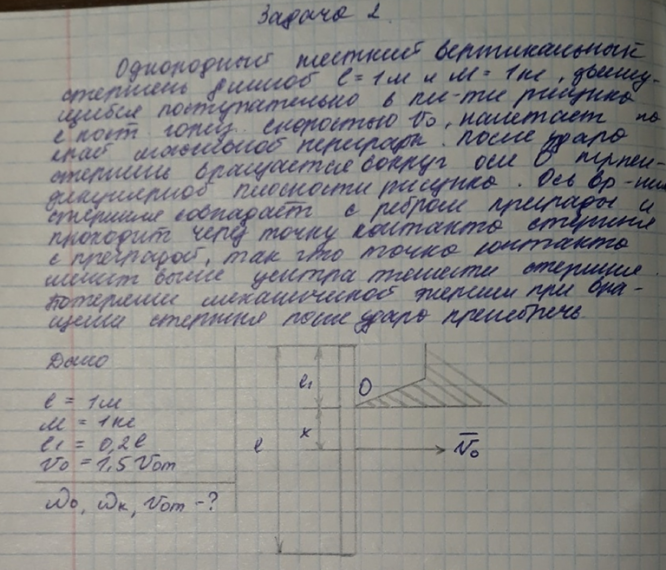 Задача 2
Однородный жесткий вертикальный
стержень длиной l = 1 м и M = 1 кг, движу-
щийся поступательно в пл-ти рисунка
с пост гориз. скоростью v₀, налетает на
край массивной преграды. После удара
стержень вращается вокруг оси O перпен-
дикулярной плоскости рисунка. Ось вр-ния
стержня совпадает с ребром преграды и
проходит через точку контакта стержня
с преградой, так что точка контакта
лежит выше центра тяжести стержня.
Потерями механической энергии при вра-
щении стержня после удара пренебречь
Дано
l = 1м
м = 1кг
l₁ = 0,2l
v₀ = 1,5 v₀m
ω₀, ωк, v₀m - ?
l₁
O
x
l
v̅₀